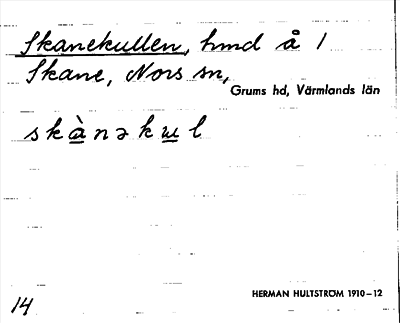 Skanekullen, hmd å 1
Skane, Nors sn,
Grums hd, Värmlands län
skànəkɯl
14
HERMAN HULTSTRÖM 1910–12